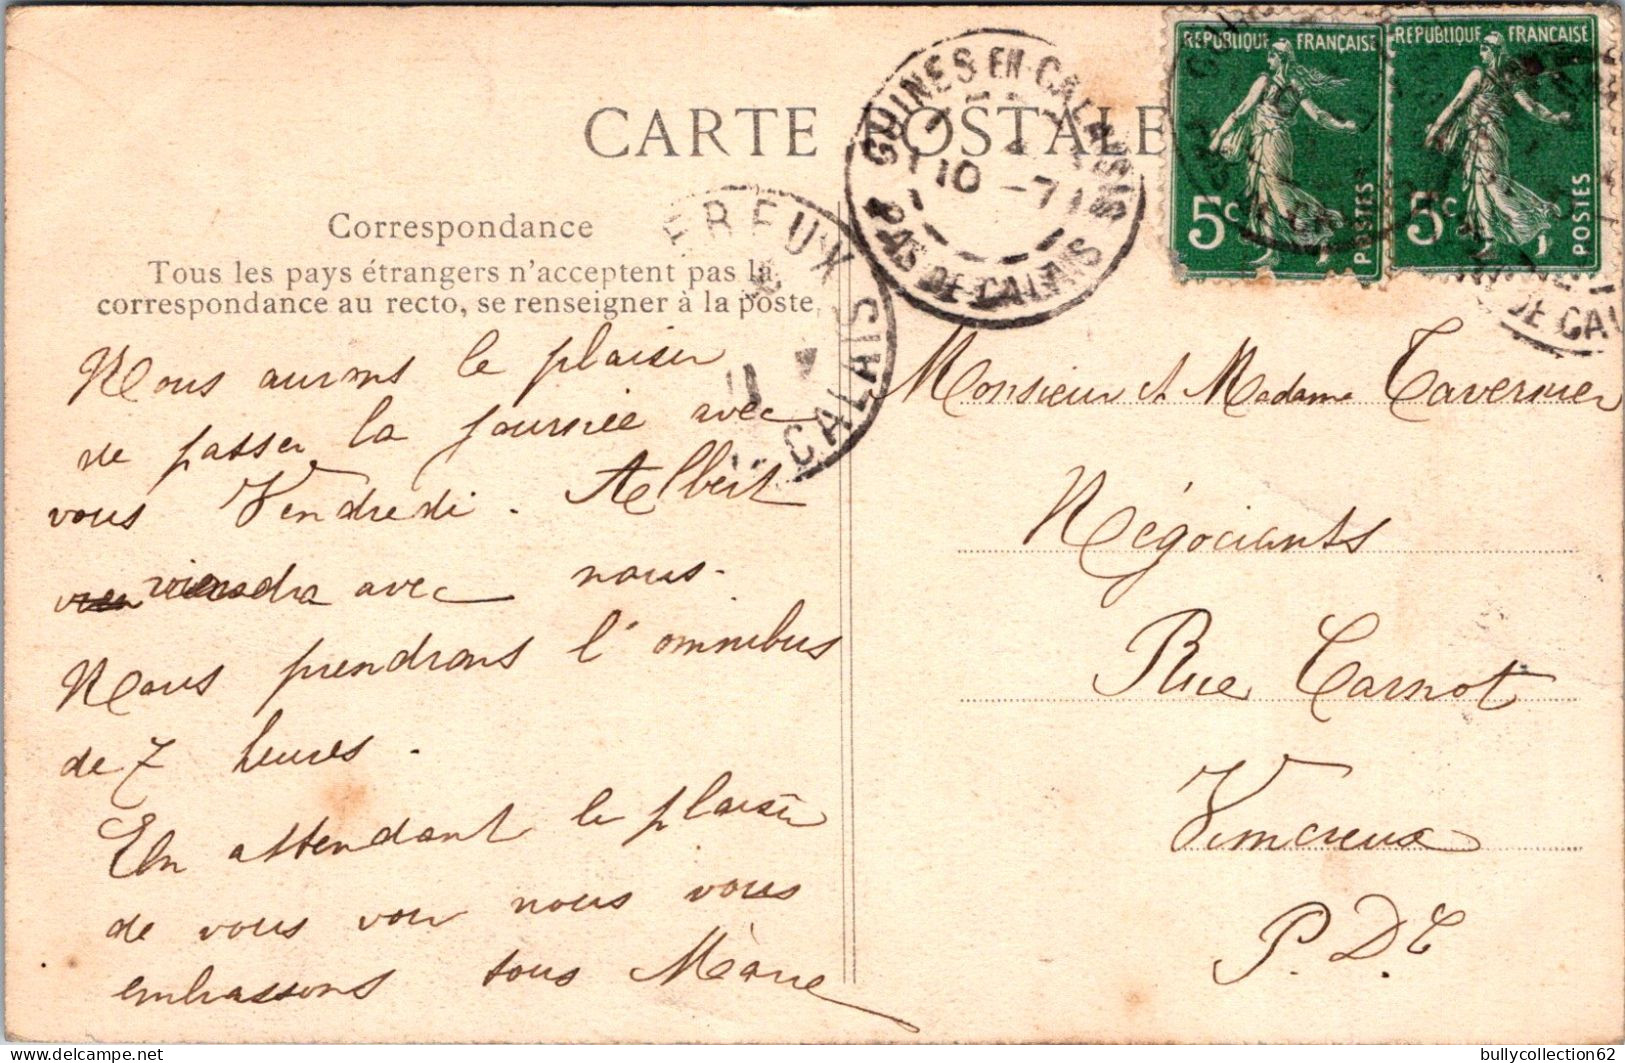 CARTE POSTALE
GUINES EN-CALAISIS
10 -7
PAS DE CALAIS
REPUBLIQUE FRANÇAISE
5c
POSTES
REPUBLIQUE FRANÇAISE
5c
POSTES
DE CAL
EREUX
CALAIS
Correspondance
Tous les pays étrangers n'acceptent pas la
correspondance au recto, se renseigner à la poste
Nous aurons le plaisir
de passer la journée avec
vous Vendredi. Albert
viendra avec nous.
Nous prendrons l'omnibus
de 7 heures.
En attendant le plaisir
de vous voir nous vous
embrassons tous Marie
Monsieur et Madame Tavernier
Négociants
Rue Carnot
Vimereux
P. D. C
delcampe.net
bullycollection62